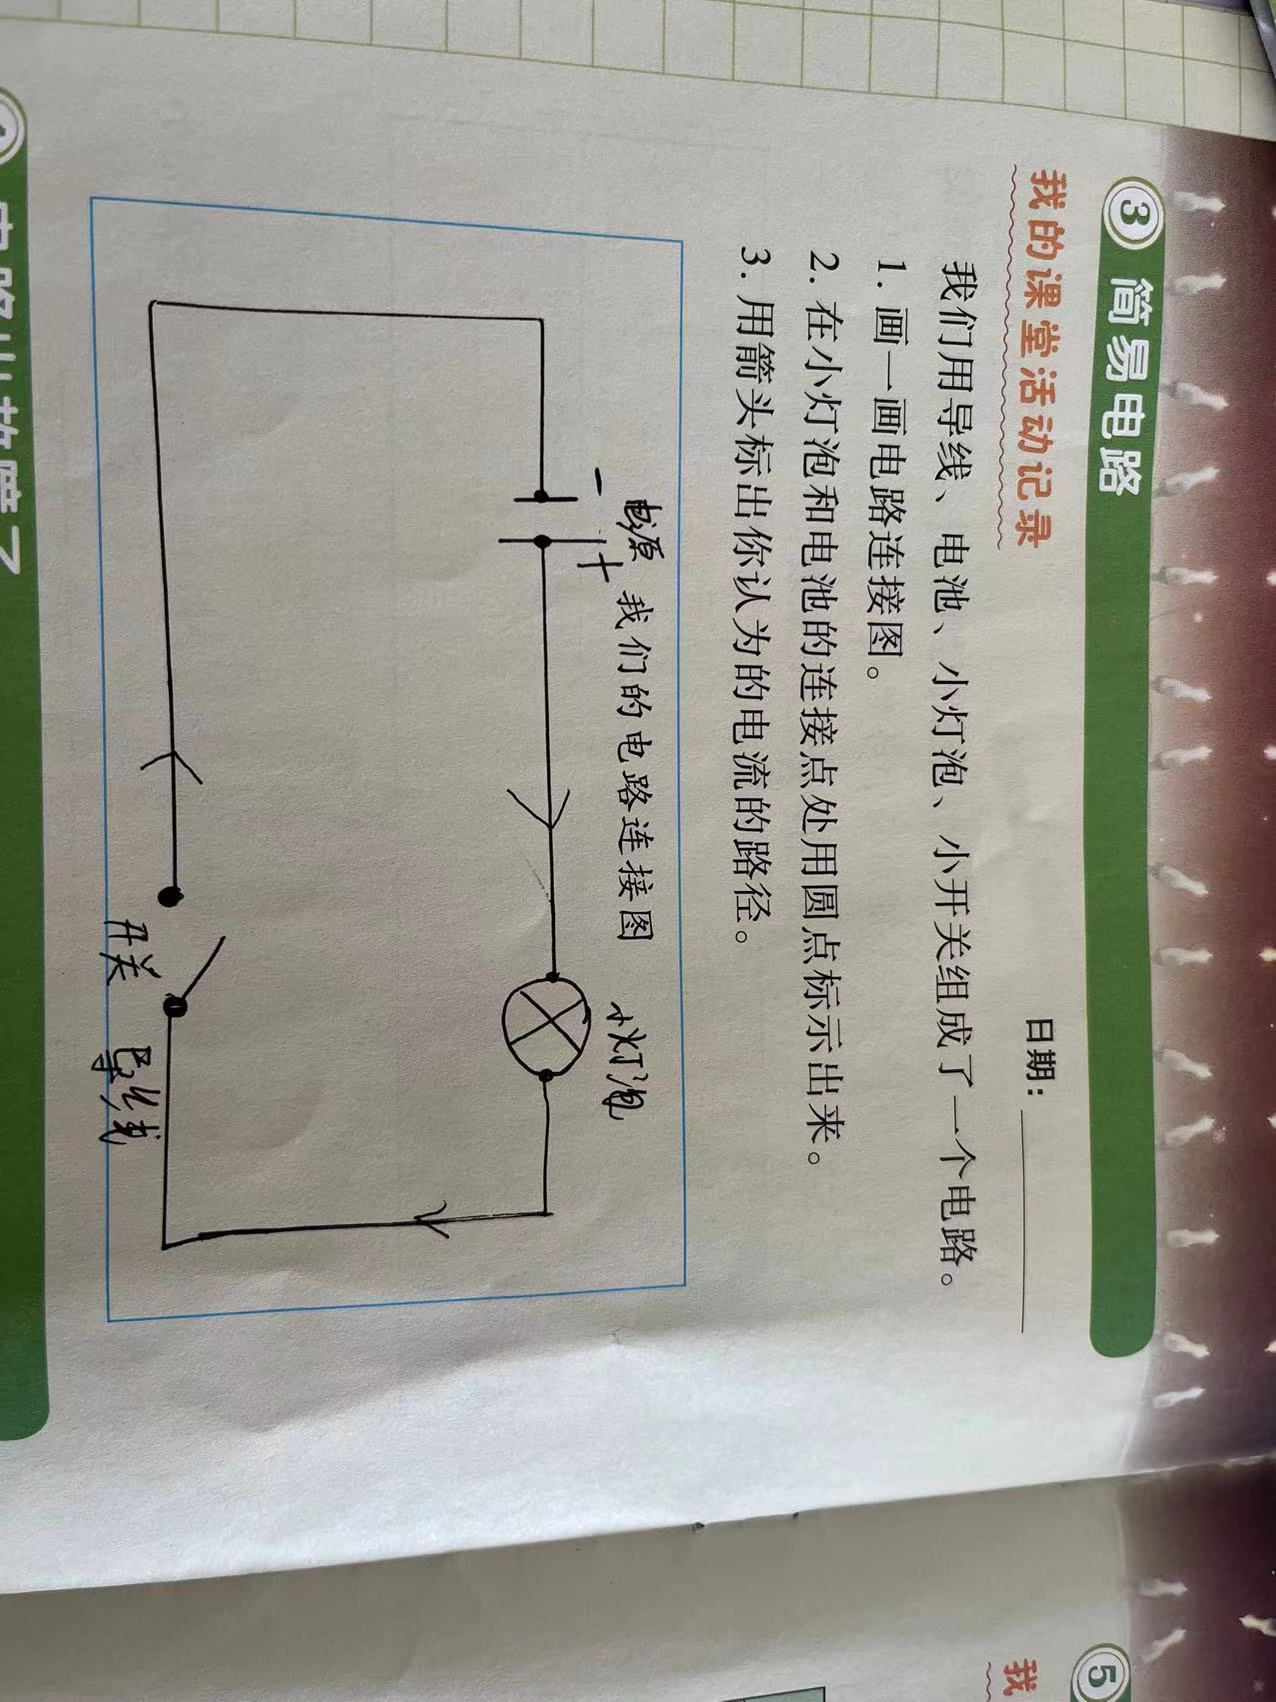 3 简易电路
我的课堂活动记录
日期：
我们用导线、电池、小灯泡、小开关组成了一个电路。
1. 画一画电路连接图。
2. 在小灯泡和电池的连接点处用圆点标示出来。
3. 用箭头标出你认为的电流的路径。
我们的电路连接图
电源
- +
小灯泡
开关
导线
5
我